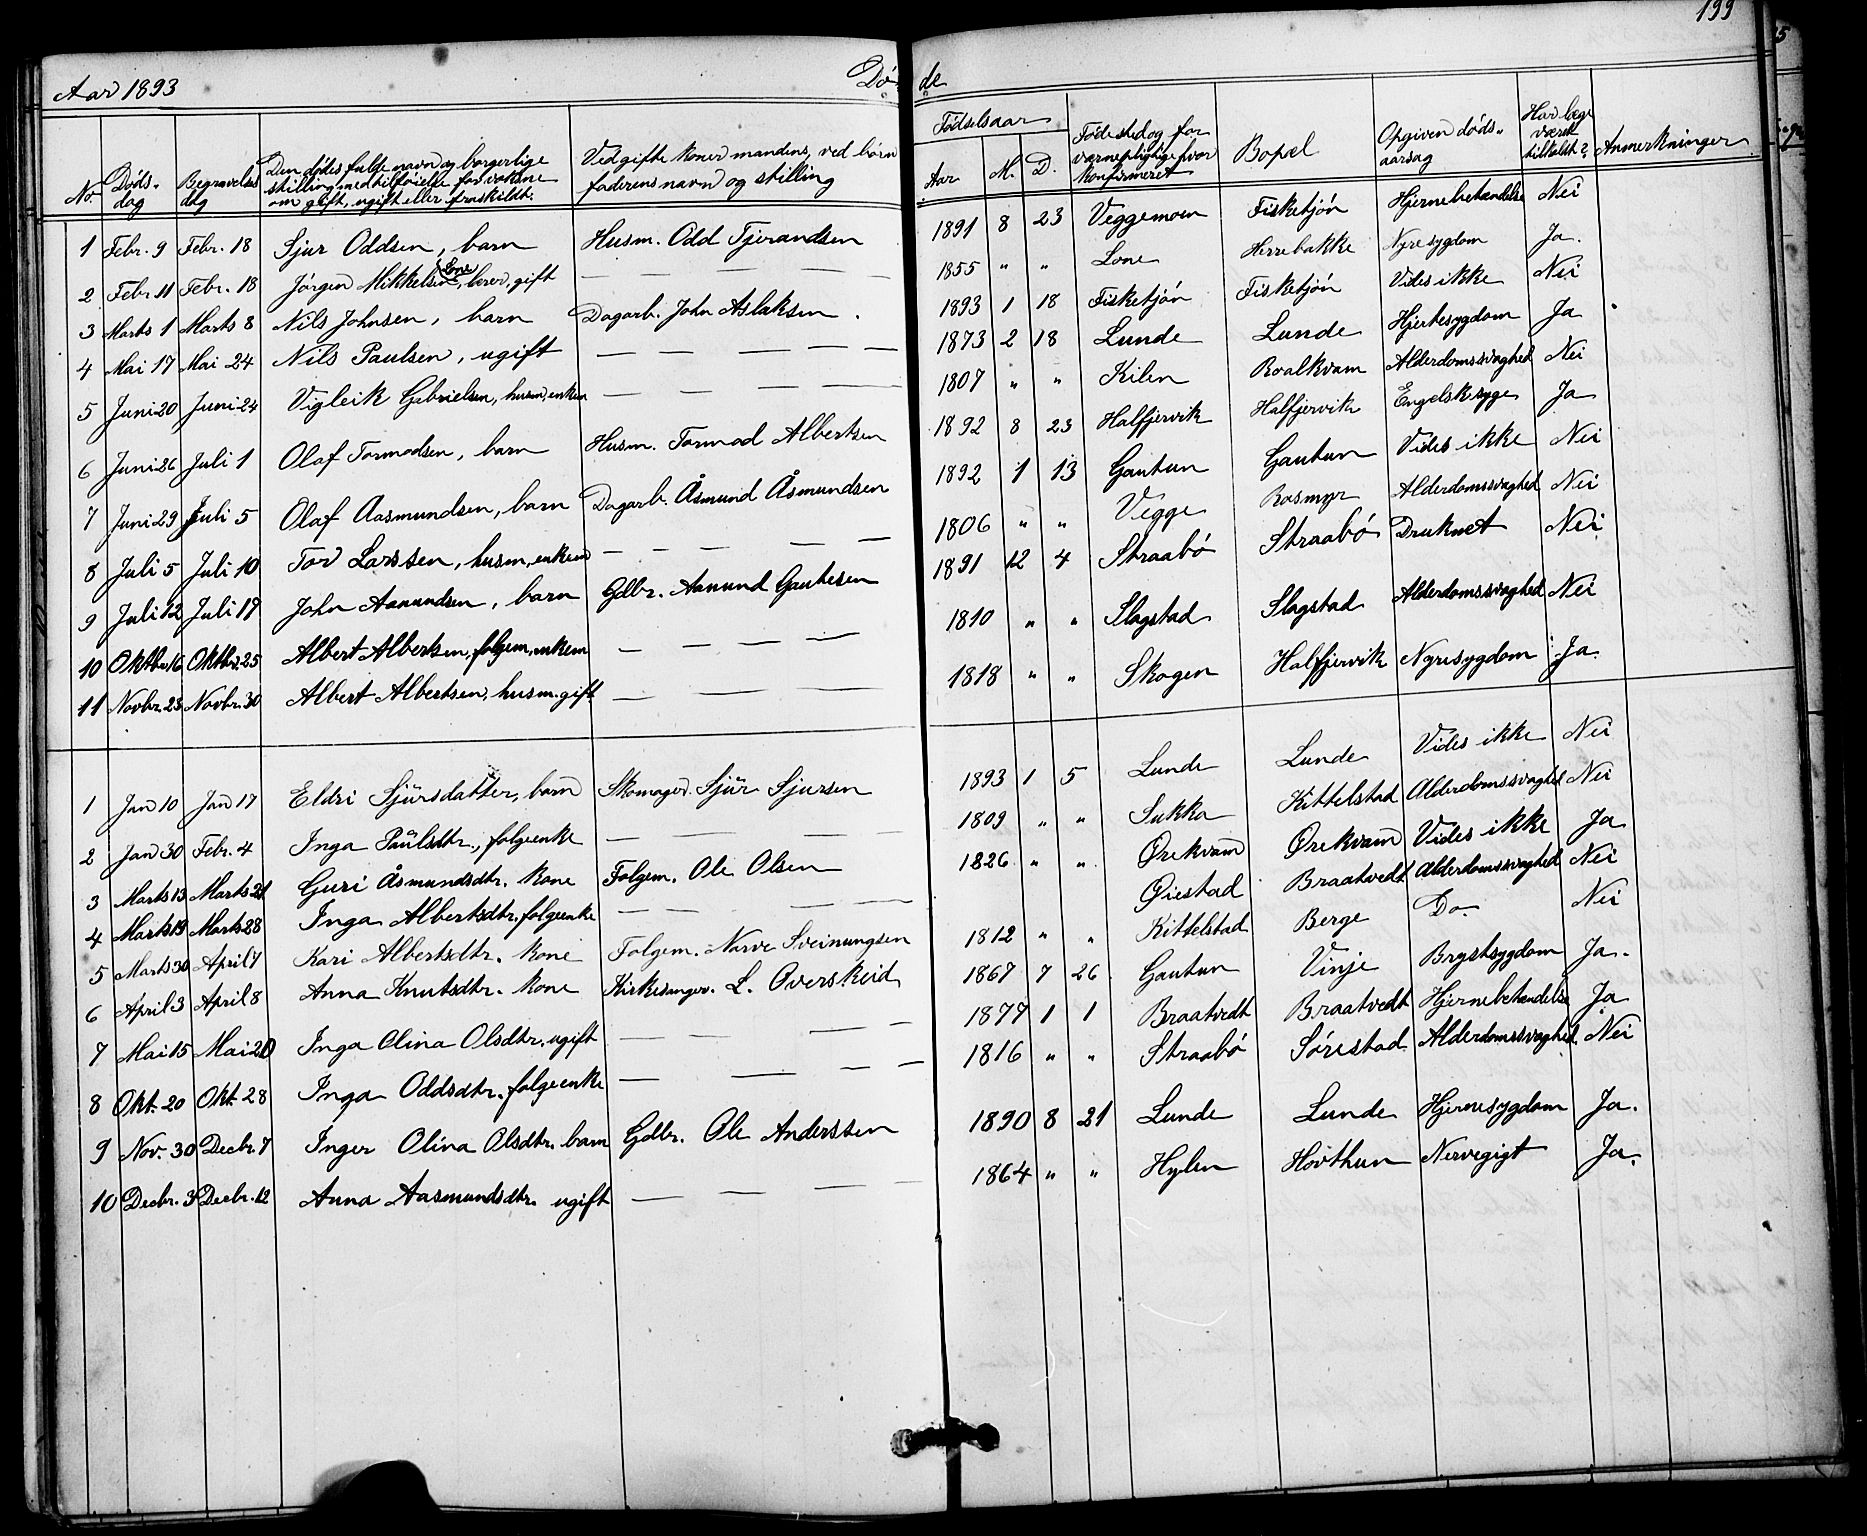 199
Aar 1893 Døde
No. Dødsdag Begravelsesdag Den dødes fulde navn og borgerlige stilling med tilføielse for voksne om gift, ugift eller fraskildt. Ved gifte koner mandens, ved børn faderens navn og stilling Fødselsaar Aar. M. D. Fødested og for værnepligtige hvor konfirmeret Bopæl Opgiven dødsaarsag Har læge været tilkaldt? Anmerkninger
1 Febr. 9 Febr. 18 Sjur Oddsen, barn Husm. Odd Tjerandsen 1891 8 23 Veggemoen Fisketjøn Hjernebetændelse Nei
2 Febr. 11 Febr. 18 Jørgen Mikkelsen Lone, lærer, gift — — — — — 1855 " " Lone Herrebakke Nyresygdom Ja.
3 Marts 1 Marts 8 Nils Johnsen, barn Dagarb. John Aslaksen. 1893 1 18 Fisketjøn Fisketjøn Vides ikke Nei
4 Mai 17 Mai 24 Nils Paulsen, ugift — — — — — 1873 2 18 Lunde Lunde Hjertesygdom Ja
5 Juni 20 Juni 24 Vigleik Gabrielsen, husm, enkem — — — — 1807 " " Kilen Roalkvam Alderdomssvaghed Nei
6 Juni 26 Juli 1 Olaf Tormodsen, barn Husm. Tormod Albertsen 1892 8 23 Halfjervik Halfjervik Engelsk syge Ja
7 Juni 29 Juli 5 Olaf Aasmundsen, barn Dagarb. Åsmund Åsmundsen 1892 1 13 Gautun Gautun Vides ikke Nei
8 Juli 5 Juli 10 Tor Larssen, husm, enkem — — — — — 1806 " " Vegge Rosmyr Alderdomssvaghed Nei
9 Juli 12 Juli 19 John Aanundsen, barn Gdbr. Aanund Gautesen 1891 12 4 Straabø Straabø Druknet Nei
10 Oktbr. 16 Oktbr. 25 Albert Albertsen, folgem, enkem — — — — 1810 " " Slagstad Slagstad Alderdomssvaghed Nei
11 Novbr. 23 Novbr. 30 Albert Albertsen, husm. gift — — — — 1818 " " Skogen Halfjervik Nyresygdom Ja.
1 Jan 10 Jan 17 Eldri Sjursdatter, barn Skomager. Sjur Sjursen 1893 1 5 Lunde Lunde Vides ikke Nei
2 Jan 30 Febr. 4 Inga Paulsdtr., folgeenke — — — — 1809 " " Sukka Kittelstad Alderdomssvaghed Nei
3 Marts 13 Marts 21 Guri Åsmundsdtr. kone Folgem. Ole Olsen 1826 " " Ørekvam Ørekvam Vides ikke Ja
4 Marts 19 Marts 28 Inga Albertsdtr. folgeenke — — — — Øiestad Braatvedt Alderdomssvaghed Nei
5 Marts 30 April 7 Kari Albertsdtr. kone Folgem. Narve Sveinungsen 1812 " " Kittelstad Berge Do. Nei
6 April 3 April 8 Anna Knutsdtr. kone Kirkesanger. L. Overskeid 1867 7 26 Gautun Vinje Brystsygdom Ja.
7 Mai 15 Mai 20 Inga Olina Olsdtr. ugift — — — — 1877 1 1 Braatvedt Braatvedt Hjernebetændelse Ja
8 Okt. 20 Okt. 28 Inga Oddsdtr. folgeenke — — — — 1816 " " Straabø Sørestad Alderdomssvaghed. Nei
9 Nov. 30 Decbr. 7 Inger Olina Olsdtr. barn Gdbr. Ole Anderssen 1890 8 21 Lunde Lunde Hjernesygdom Ja.
10 Decbr. 3 Decbr. 12 Anna Aasmundsdtr. ugift — — — — 1864 " " Hylen Hovthun Nervegigt Ja.